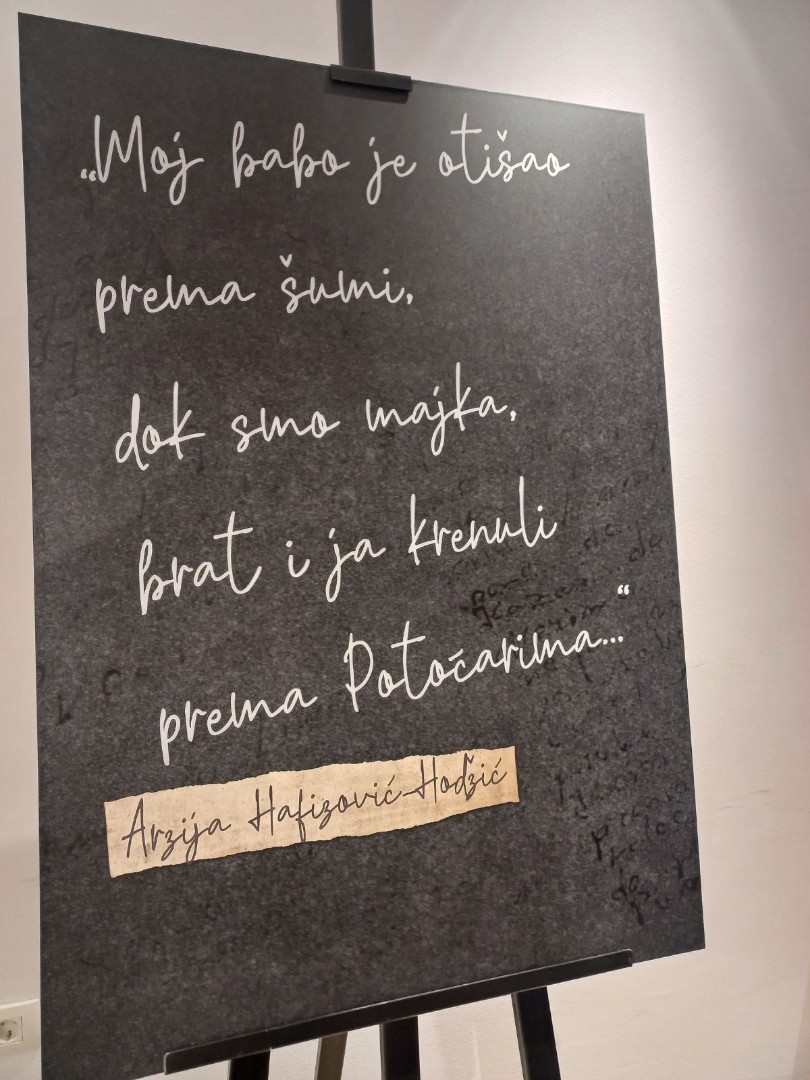 „Moj babo je otišao
prema šumi,
dok smo majka,
brat i ja krenuli
prema Potočarima...“
Arzija Hafizović-Hodžić